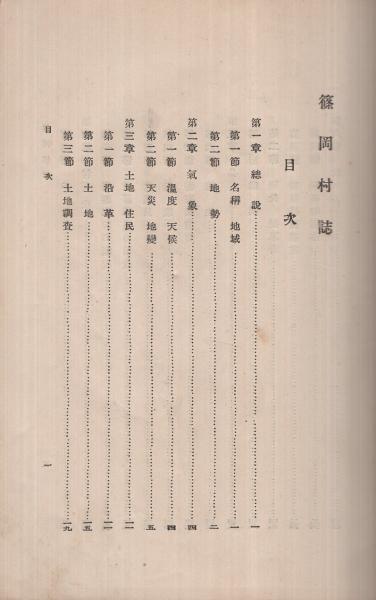 篠岡村誌
目次
第一章 總説……一
第一節 名稱 地域……一
第二節 地勢……二
第二章 氣象……四
第一節 溫度 天候……四
第二節 天災 地變……五
第三章 土地 住民……一一
第一節 沿革……一一
第二節 土地……一五
第三節 土地調査……一九
目次 一